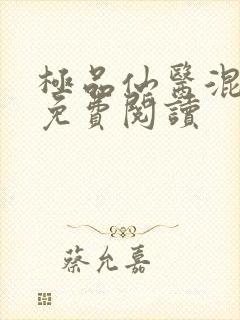 極品仙醫混
免費閱讀
蔡允嘉